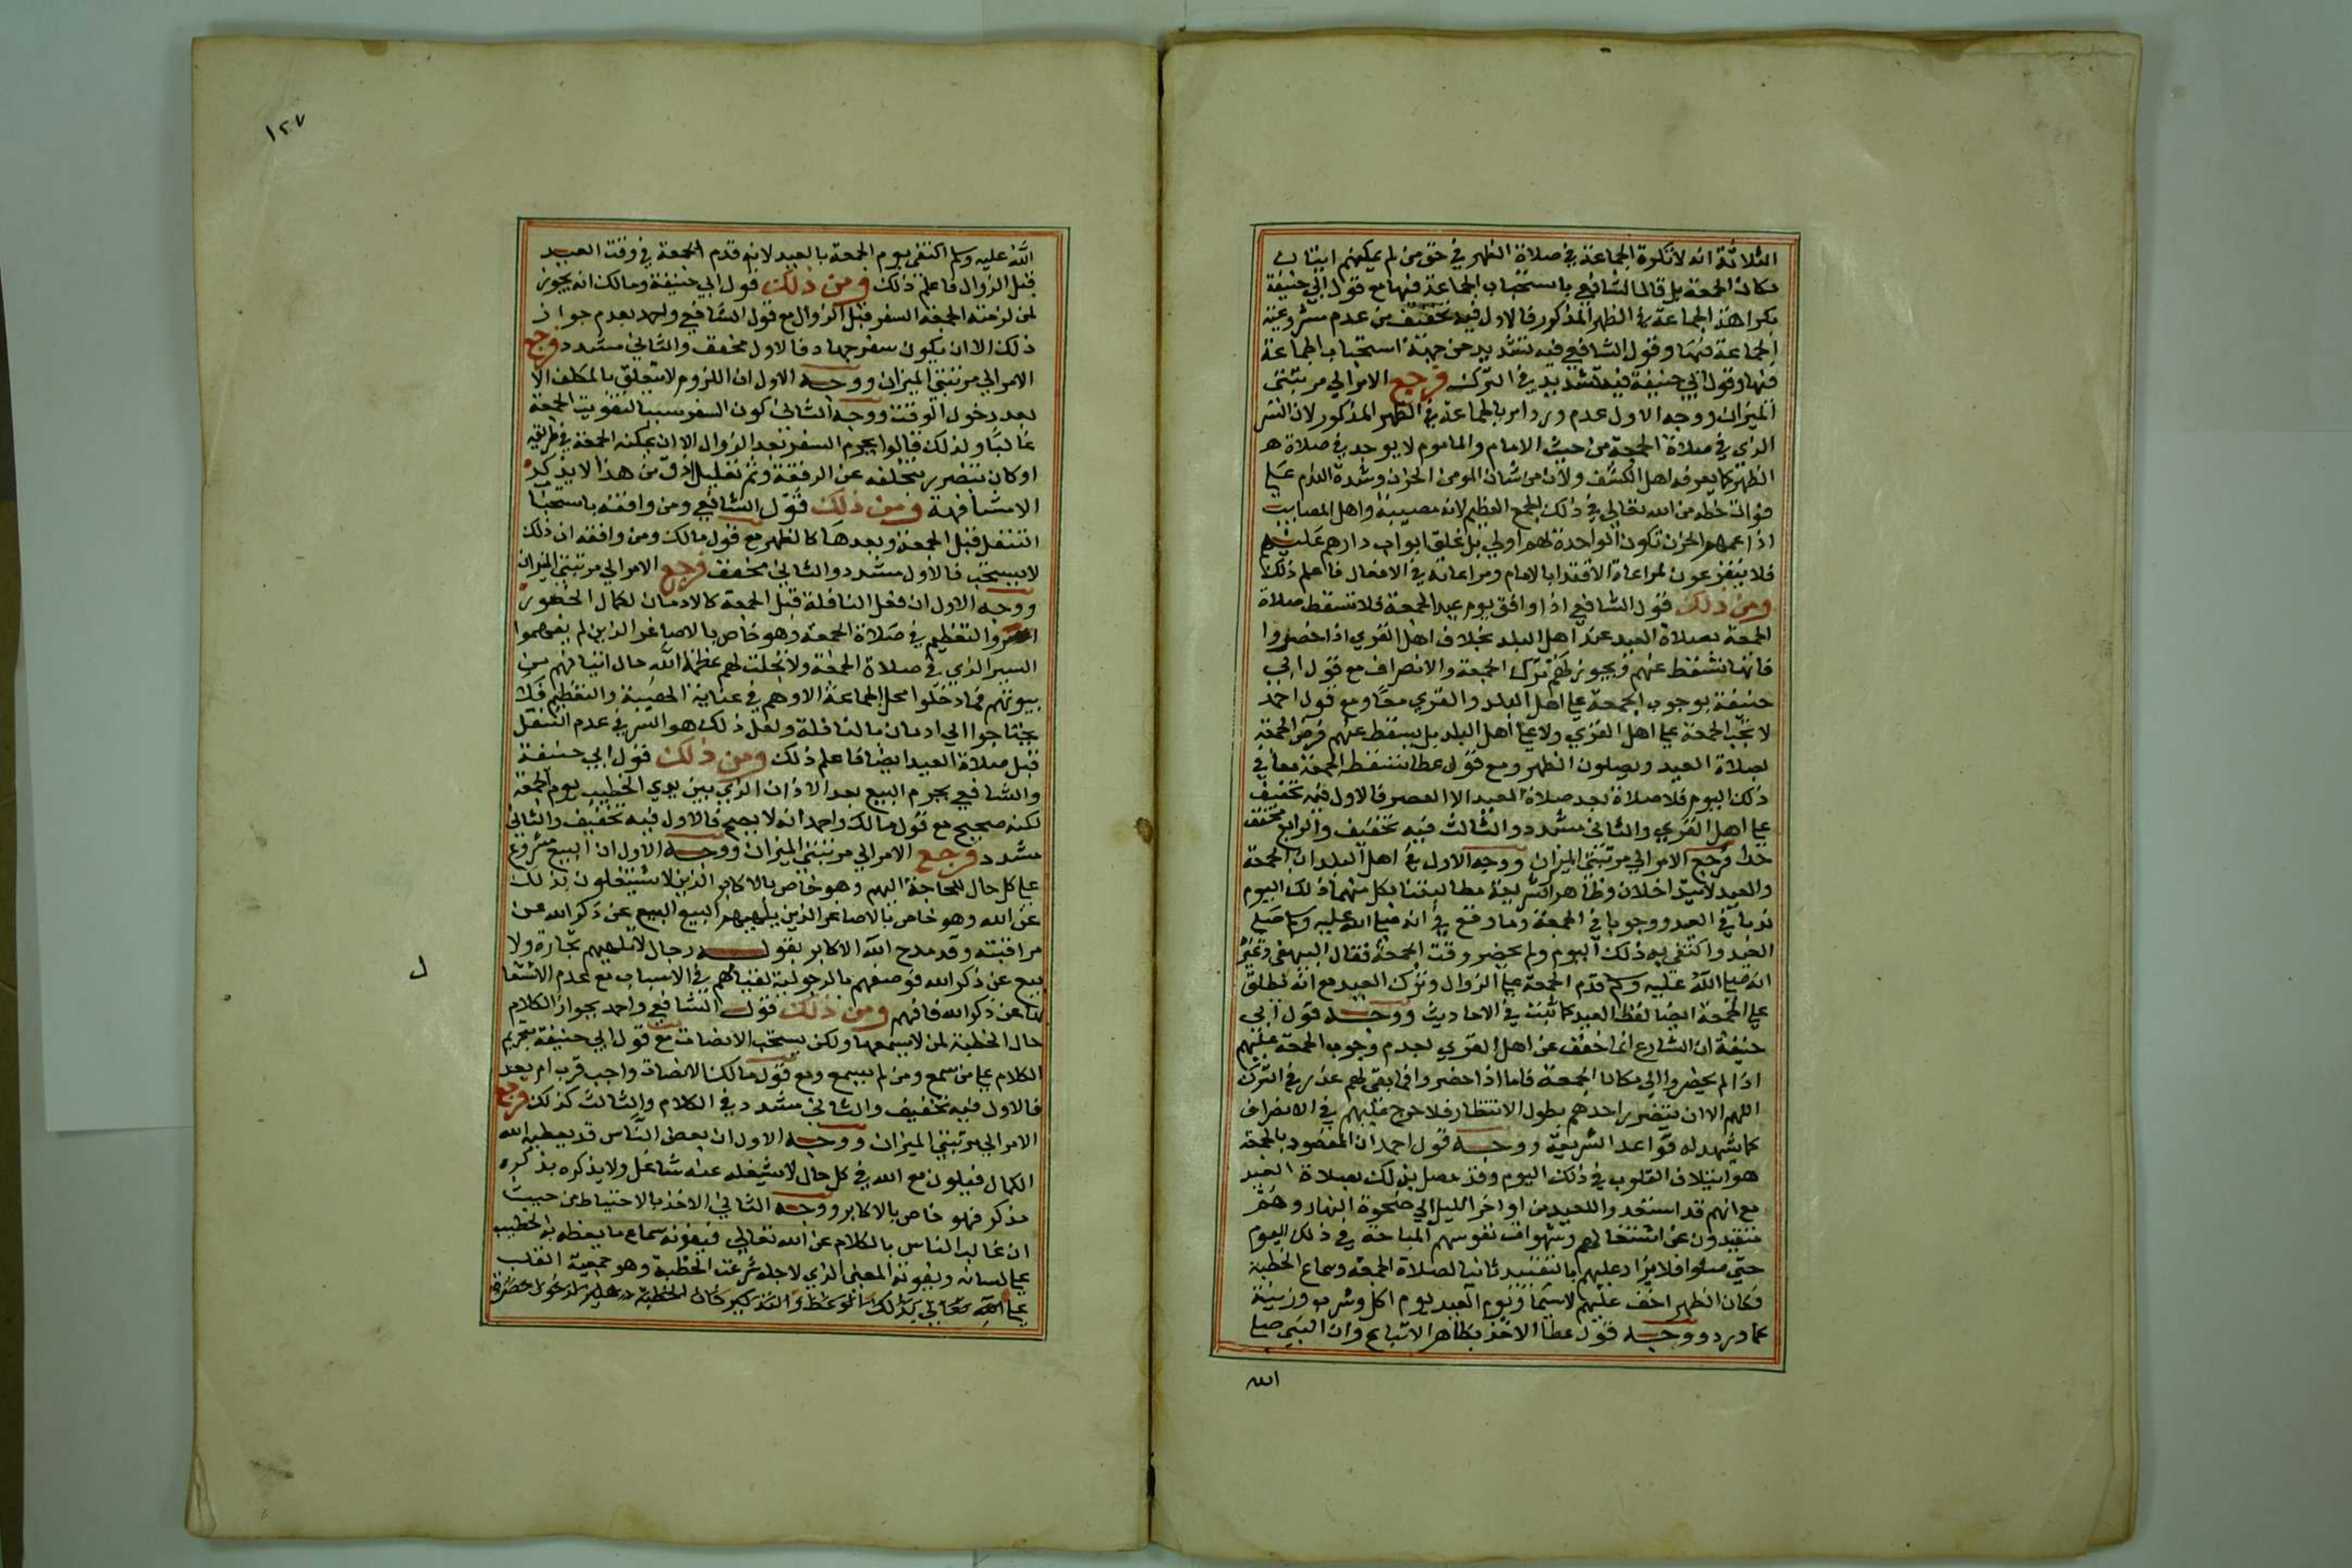 الثلاثة انه لا تكره الجماعة في صلاة الظهر في حق من لم يمكنهم اتيان
مكان الجمعة بل قال الشافعي باستحباب الجماعة فيها مع قول ابي حنيفة
بكراهة الجماعة في الظهر المذكور فالاول فيه تخفيف من عدم مشروعية
الجماعة فيها وقول الشافعي فيه تشديد من جهة استحباب الجماعة
فيها وقول ابي حنيفة فيه تشديد في الترك فرجع الامر الي مرتبتى
الميزان ووجه الاول عدم ورود امر بالجماعة في الظهر المذكور لان السر
الذي في صلاة الجمعة من حيث الامام والماموم لا يوجد في صلاة
الظهر كما يعرفه اهل الكشف ولان من شان المومن الحزن وشدة الندم علي
فوات حظه من الله تعالي في ذلك الجمع العظيم لانه مصيبة واهل المصايب
اذا عمهم الحزن تكون الواحدة لهم اولي بل غلق ابواب دارهم عليهم
فلا يتفرغون لمراعاة الاقتدا بالامام ومراعاته في الافعال فاعلم ذلك
ومن ذلك قول الشافعي اذا وافق يوم عيد الجمعة فلا تسقط صلاة
الجمعة بصلاة العيد عند اهل البلد بخلاف اهل القري اذا حضروا
فانها تسقط عنهم ويجوز لهم ترك الجمعة والانصراف مع قول ابي
حنيفة بوجوب الجمعة علي اهل البلد والقري معا ومع قول احمد
لا تجب الجمعة علي اهل القري ولا علي اهل البلد بل يسقط عنهم فرض الجمعة
بصلاة العيد ويصلون الظهر ومع قول عطا تسقط الجمعة معا في
ذلك اليوم فلا صلاة بعد صلاة العيد الا العصر فالاول فيه تخفيف
علي اهل القري والثاني مشدد والثالث فيه تخفيف والرابع مخفف
جدا فرجع الامر الي مرتبتى الميزان ووجه الاول في اهل البلد ان الجمعة
والعيد لا يتداخلان وظاهر الشريعة مطالبتنا بكل منهما ذلك اليوم
ندبا في العيد ووجوبا في الجمعة وما وقع في انه صلي الله عليه وسلم صلي
العيد واكتفي به ذلك اليوم ولم يحضر وقت الجمعة فقال البيهقي وغيره
انه صلي الله عليه وسلم قدم الجمعة علي الزوال وترك العيد مع انه نطلق
علي الجمعة ايضا لفظ العيد كما ثبت في الاحاديث ووجه قول ابي
حنيفة ان الشارع انما خفف عن اهل القري بعدم وجوب الجمعة عليهم
اذا لم يحضروا الي مكان الجمعة فاما اذا حضروا فما بقي لهم عذر في الترك
اللهم الا ان يتضرر احدهم بطول الانتظار فلا حرج عليهم في الانصراف
كما يشهد له قواعد الشريعة ووجه قول احمد ان المقصود بالجمعة
هو ايتلاف القلوب في ذلك اليوم وقد حصل بذلك بصلاة العيد
مع انهم قد استعدوا للعيد من اواخر الليل الي ضحوة النهار وهم
متقيدون عن اشتغالهم وشهوات نفوسهم المباحة في ذلك اليوم
حتي صلوا فلا يزاد عليهم بالتقييد ثانيا لصلاة الجمعة وسماع الخطبة
فكان الظهر اخف عليهم لاسيما ويوم العيد يوم اكل وشرب وزينة
كما ورد ووجه قول عطا الاخذ بظاهر الاتباع وان النبي صلي
الله
١٢٧
الله عليه وسلم اكتفي يوم الجمعة بالعيد لانه قدم الجمعة في وقت العيد
قبل الزوال فاعلم ذلك ومن ذلك قول ابي حنيفة ومالك انه يجوز
لمن لزمته الجمعة السفر قبل الزوال مع قول الشافعي واحمد بعدم جواز
ذلك الا ان يكون سفر جهاد فالاول مخفف والثاني مشدد فرجع
الامر الي مرتبتي الميزان ووجه الاول ان اللزوم لا يتعلق بالمكلف الا
بعد دخول الوقت ووجه الثاني كون السفر سببا لتفويت الجمعة
غالبا ولذلك قالوا يحرم السفر بعد الزوال الا ان يمكنه الجمعة في طريقه
او كان يتضرر بتخلفه عن الرفقة وثم تعليل ادق من هذا لا يذكر
الا مشافهة ومن ذلك قول الشافعي ومن وافقه باستحباب
التنفل قبل الجمعة وبعدها كالظهر مع قول مالك ومن وافقه ان ذلك
لا يستحب فالاول مشدد والثاني مخفف فرجع الامر الي مرتبتي الميزان
ووجه الاول ان فعل النافلة قبل الجمعة كالادمان لكمال الحضور
والتعظيم في صلاة الجمعة وهو خاص بالاصاغر الذين لم يفهموا
السر الذي في صلاة الجمعة ولا تجلت لهم عظمة الله حال اتيانهم من
بيوتهم فما دخلوا محل الجماعة الا وهم في غاية الهيبة والتعظيم فلم
يحتاجوا الي ادمان بالنافلة ولعل ذلك هو السر في عدم التنفل
قبل صلاة العيد ايضا فاعلم ذلك ومن ذلك قول ابي حنيفة
والشافعي يحرم البيع بعد الاذان الذي بين يدي الخطيب يوم الجمعة
لكنه صحيح مع قول مالك واحمد انه لا يصح فالاول فيه تخفيف والثاني
مشدد فرجع الامر الي مرتبتي الميزان ووجه الاول ان البيع مشروع
علي كل حال للحاجة اليهم وهو خاص بالاكابر الذين لا يشتغلون بذلك
عن الله وهو خاص بالاصاغر الذين يلهيهم البيع عن ذكر الله عن
مراقبته وقد مدح الله الاكابر بقوله رجال لا تلهيهم تجارة ولا
بيع عن ذكر الله فوصفهم بالرجولية لقيامهم في الاسباب مع عدم الاشتغا
ل
بها عن ذكر الله فافهم ومن ذلك قول الشافعي واحمد بجواز الكلام
حال الخطبة لمن لا يسمعها ولكن يستحب الانصات مع قول ابي حنيفة بتحريم
الكلام علي من سمع ومن لم يسمع ومع قول مالك الانصات واجب قرب ام بعد
فالاول فيه تخفيف والثاني مشدد في الكلام والثالث كذلك فرجع
الامر الي مرتبتي الميزان ووجه الاول ان بعض الناس قد يعطيه الله
الكمال فيكون مع الله في كل حال لا يشغله عنه شاغل ولا يذكره بذكره
مذكر فهو خاص بالاكابر ووجه الثاني الاخذ بالاحتياط من حيث
ان غالب الناس بالكلام عن الله تعالي فيفوته سماع ما يعظه به الخطيب
علي لسانه ويفوته المعني الذي لاجله شرعت الخطبة وهو جمعية القلب
علي الله تعالي بذلك الوعظ والتذكير فان الخطبة